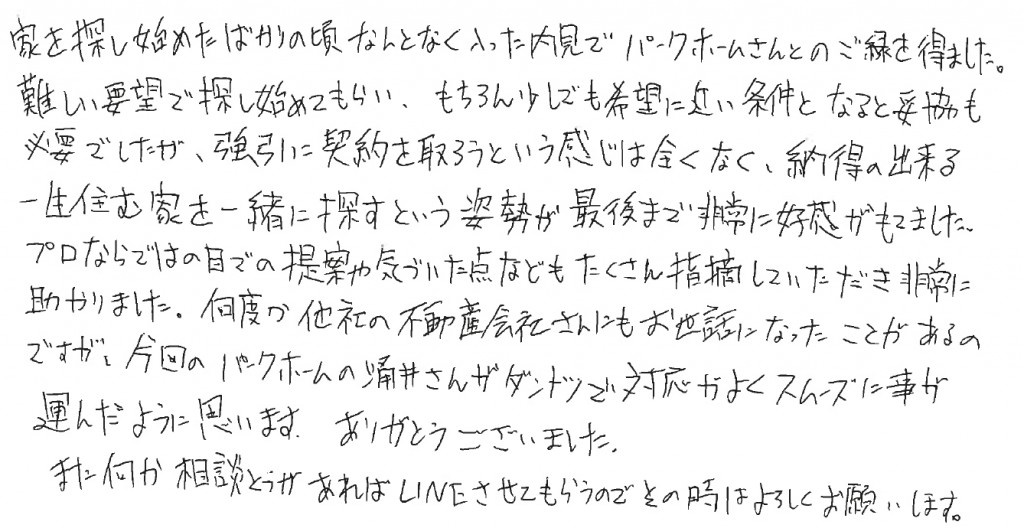 家を探し始めたばかりの頃なんとなく入った内見でパークホームさんとのご縁を得ました。
難しい要望で探し始めてもらい、もちろん少しでも希望に近い条件となると妥協も
必要でしたが、強引に契約を取ろうという感じは全くなく、納得の出来る
一生住む家を一緒に探すという姿勢が最後まで非常に好感がもてました。
プロならではの目での提案や気づいた点などもたくさん指摘していただき非常に
助かりました。何度か他社の不動産会社さんにもお世話になったことがあるの
ですが、今回のパークホームの涌井さんがダントツで対応がよくスムーズに事が
運んだように思います。ありがとうございました。
また何か相談とうがあればLINEさせてもらうのでその時はよろしくお願いします。